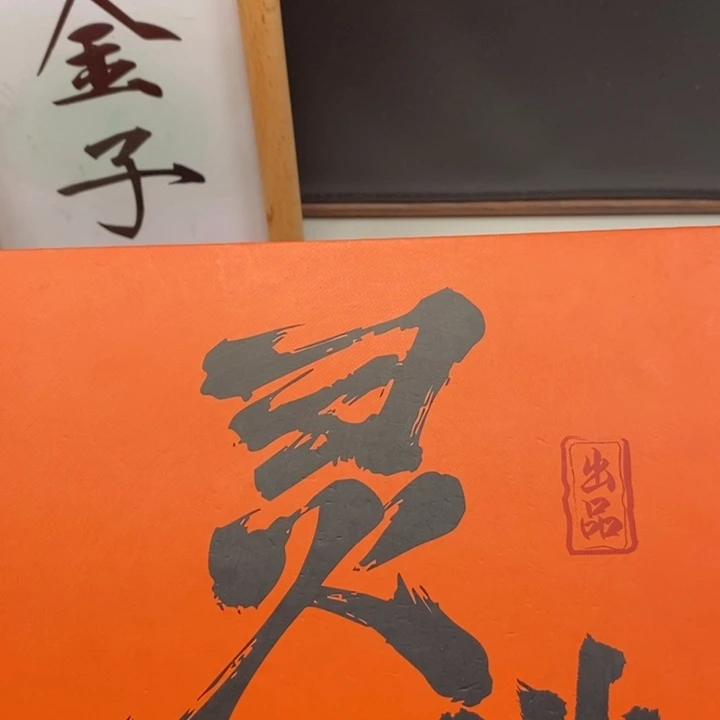 金子
灵
出品